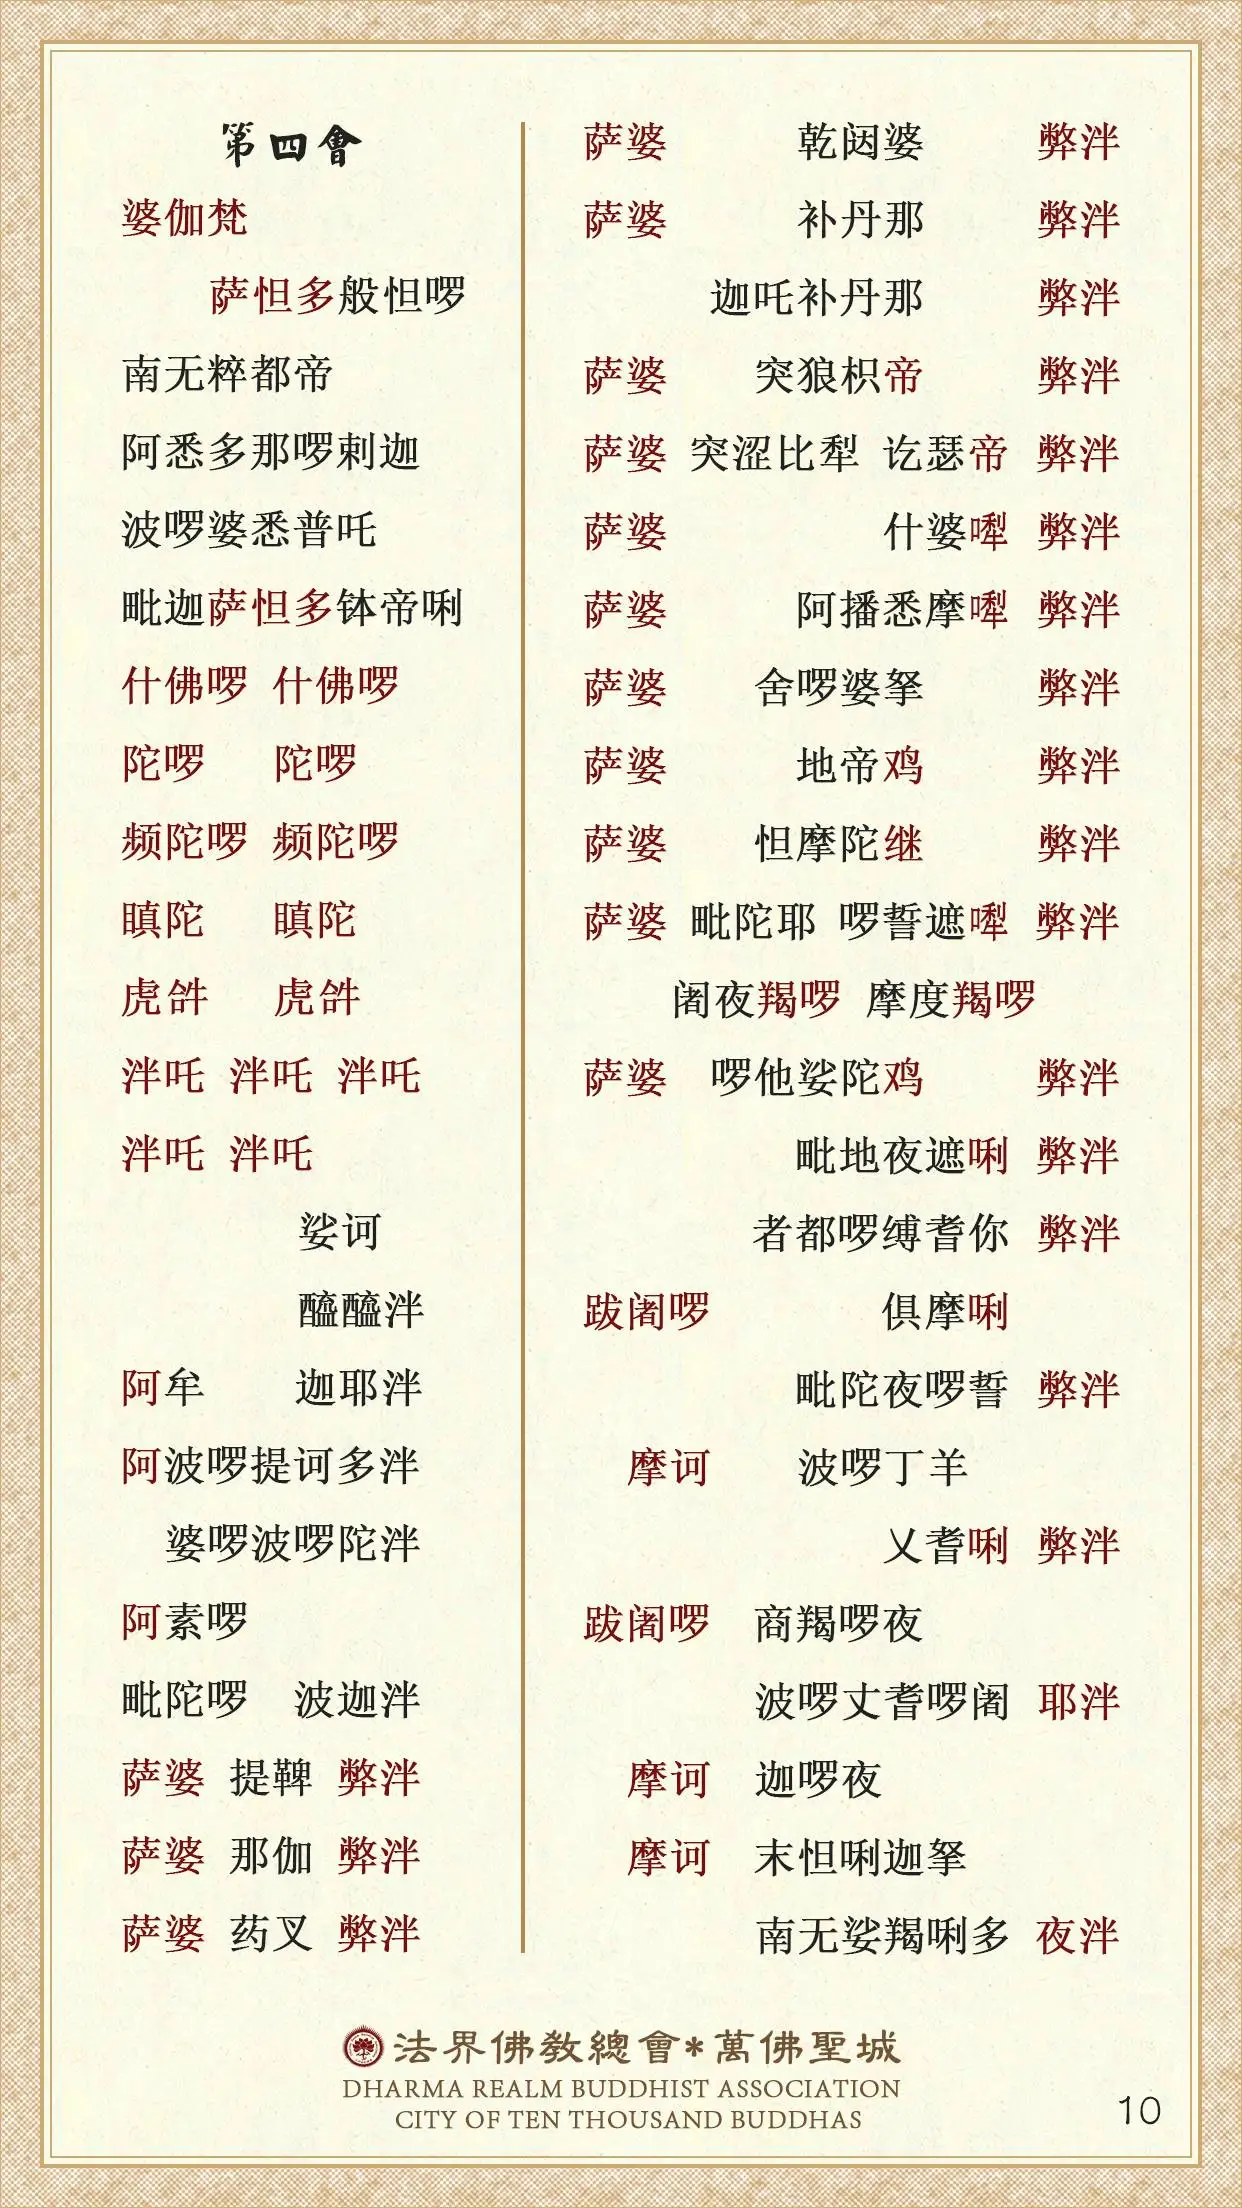 第四會
婆伽梵
萨怛多般怛啰
南无粹都帝
阿悉多那啰剌迦
波啰婆悉普吒
毗迦萨怛多钵帝唎
什佛啰 什佛啰
陀啰 陀啰
频陀啰 频陀啰
瞋陀 瞋陀
虎𤙖 虎𤙖
泮吒 泮吒 泮吒
泮吒 泮吒
娑诃
醯醯泮
阿牟 迦耶泮
阿波啰提诃多泮
婆啰波啰陀泮
阿素啰
毗陀啰 波迦泮
萨婆 提鞞 弊泮
萨婆 那伽 弊泮
萨婆 药叉 弊泮
萨婆 乾闼婆 弊泮
萨婆 补丹那 弊泮
迦吒补丹那 弊泮
萨婆 突狼枳帝 弊泮
萨婆 突涩比犁 讫瑟帝 弊泮
萨婆 什婆㗚 弊泮
萨婆 阿播悉摩㗚 弊泮
萨婆 舍啰婆拏 弊泮
萨婆 地帝鸡 弊泮
萨婆 怛摩陀继 弊泮
萨婆 毗陀耶 啰誓遮㗚 弊泮
阇夜羯啰 摩度羯啰
萨婆 啰他娑陀鸡 弊泮
毗地夜遮唎 弊泮
者都啰缚耆你 弊泮
跋阇啰 俱摩唎
毗陀夜啰誓 弊泮
摩诃 波啰丁羊
乂耆唎 弊泮
跋阇啰 商羯啰夜
波啰丈耆啰阇 耶泮
摩诃 迦啰夜
摩诃 末怛唎迦拏
南无娑羯唎多 夜泮
法界佛教總會*萬佛聖城
DHARMA REALM BUDDHIST ASSOCIATION
CITY OF TEN THOUSAND BUDDHAS
10